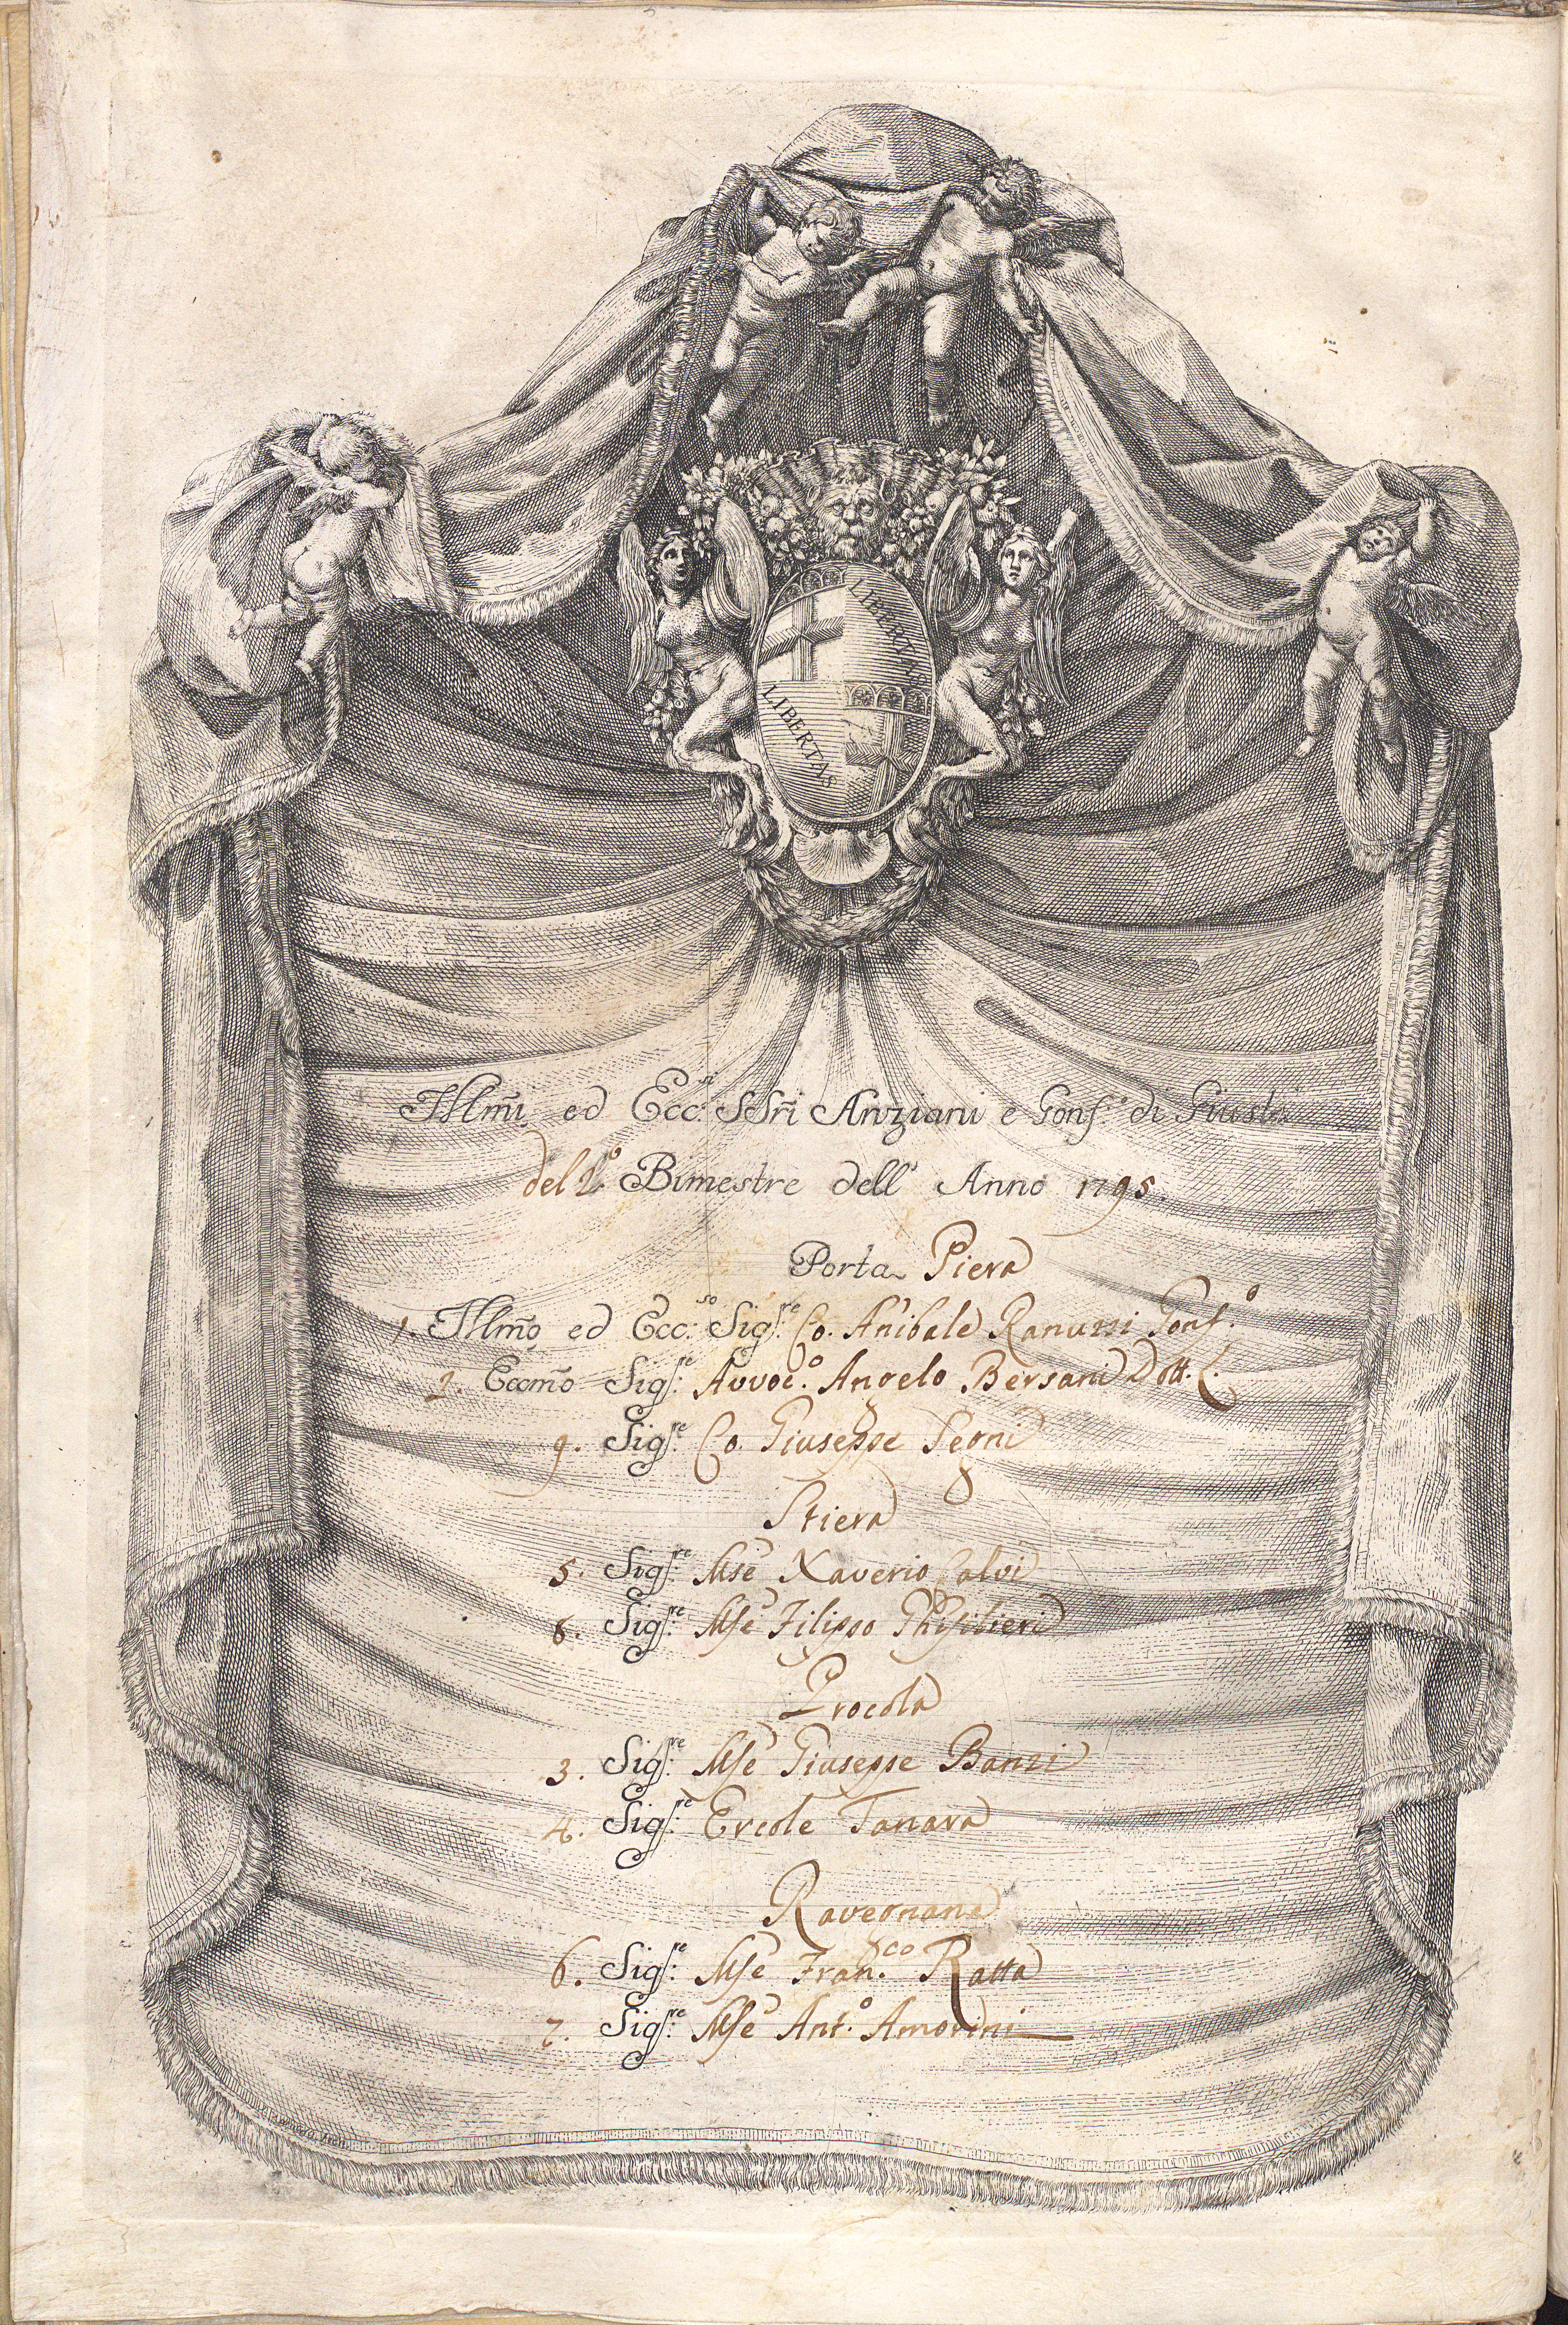 LIBERTAS
LIBERTAS
Illm̃i ed Ecc.si SSr̃i Anziani e Gonf.e di Giust.a
del 2.o Bimestre dell' Anno 1795.
Porta Piera
1. Illm̃o ed Ecc.so Sig.re Co. Anibale Ranuzzi Gonf.o
2. Eccm̃o Sig.re Avvoc.o Angelo Bersani Dott. C.
9. Sig.re Co. Giuseppe Segni
Stiera
5. Sig.re Mse Xaverio Calvi
8. Sig.re Mse Filippo Ghisilieri
Procola
3. Sig.re Mse Giuseppe Banzi
4. Sig.re Ercole Tanara
Ravegnana
6. Sig.re Mse Fran.co Ratta
7. Sig.re Mse Ant.o Amorini